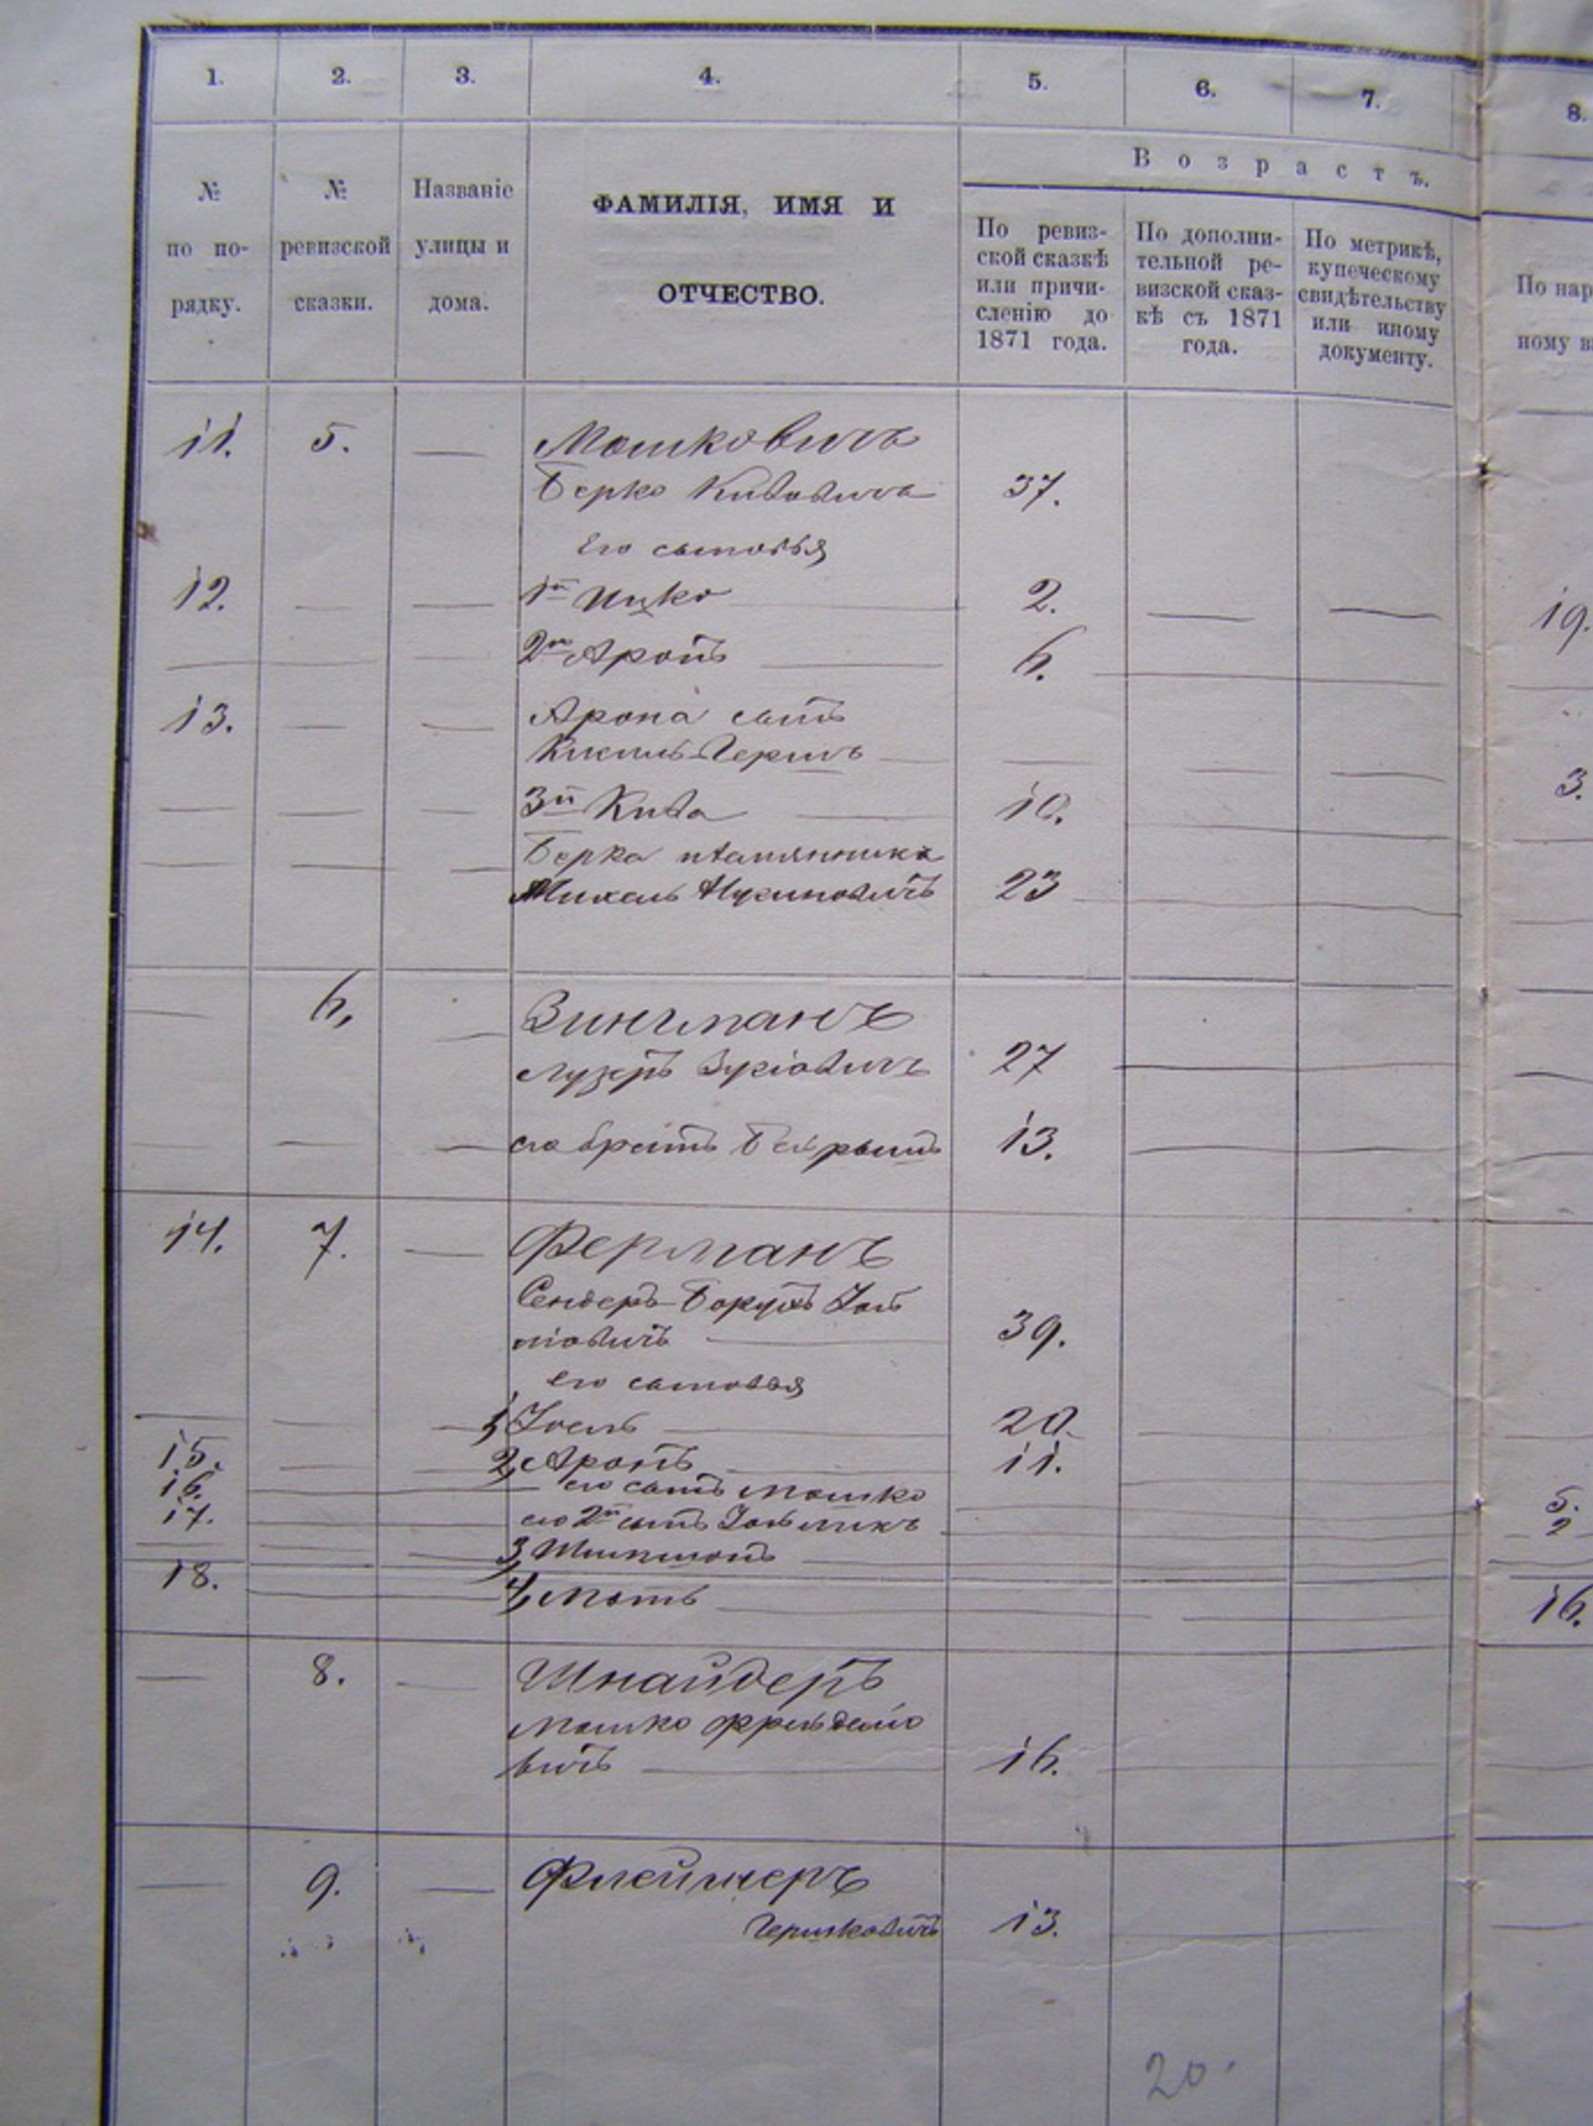 1. 2. 3. 4. 5. 6. 7. 8.
№ по по-рядку.
№ ревизской сказки.
Названіе улицы и дома.
ФАМИЛІЯ, ИМЯ И
ОТЧЕСТВО.
Возрастъ.
По ревиз-
ской сказкѣ
или причи-
сленію до
1871 года.
По дополни-
тельной ре-
визской сказ-
кѣ съ 1871
года.
По метрикѣ,
купеческому
свидѣтельству
или иному
документу.
По нар
ному в
11. 5. — Мошковичъ
Берко Кивовичъ 37.
Его сыновья
12. — — 1й Ицко 2. — — 19.
2й Аронъ 6.
13. — — Арона сынъ
Кисиль-Гершъ — — — — 3.
3й Кива 10.
Берка племянникъ
Михель 23
— 6. — Вингманъ
Лузеръ 27
— — — его братъ 13.
14. 7. — Ферманъ
Сендеръ-Борухъ
39.
его сыновья
1, Іосель 20.
15. 2, Аронъ 11.
16. его сынъ Мошко 5.
17. его 2й сынъ 2
3, Шимшонъ
18. 4, Моть 16.
— 8. — Шнайдеръ
Мошко
вичъ 16.
— 9. — Флейшеръ
Гершковичъ 13.
20.